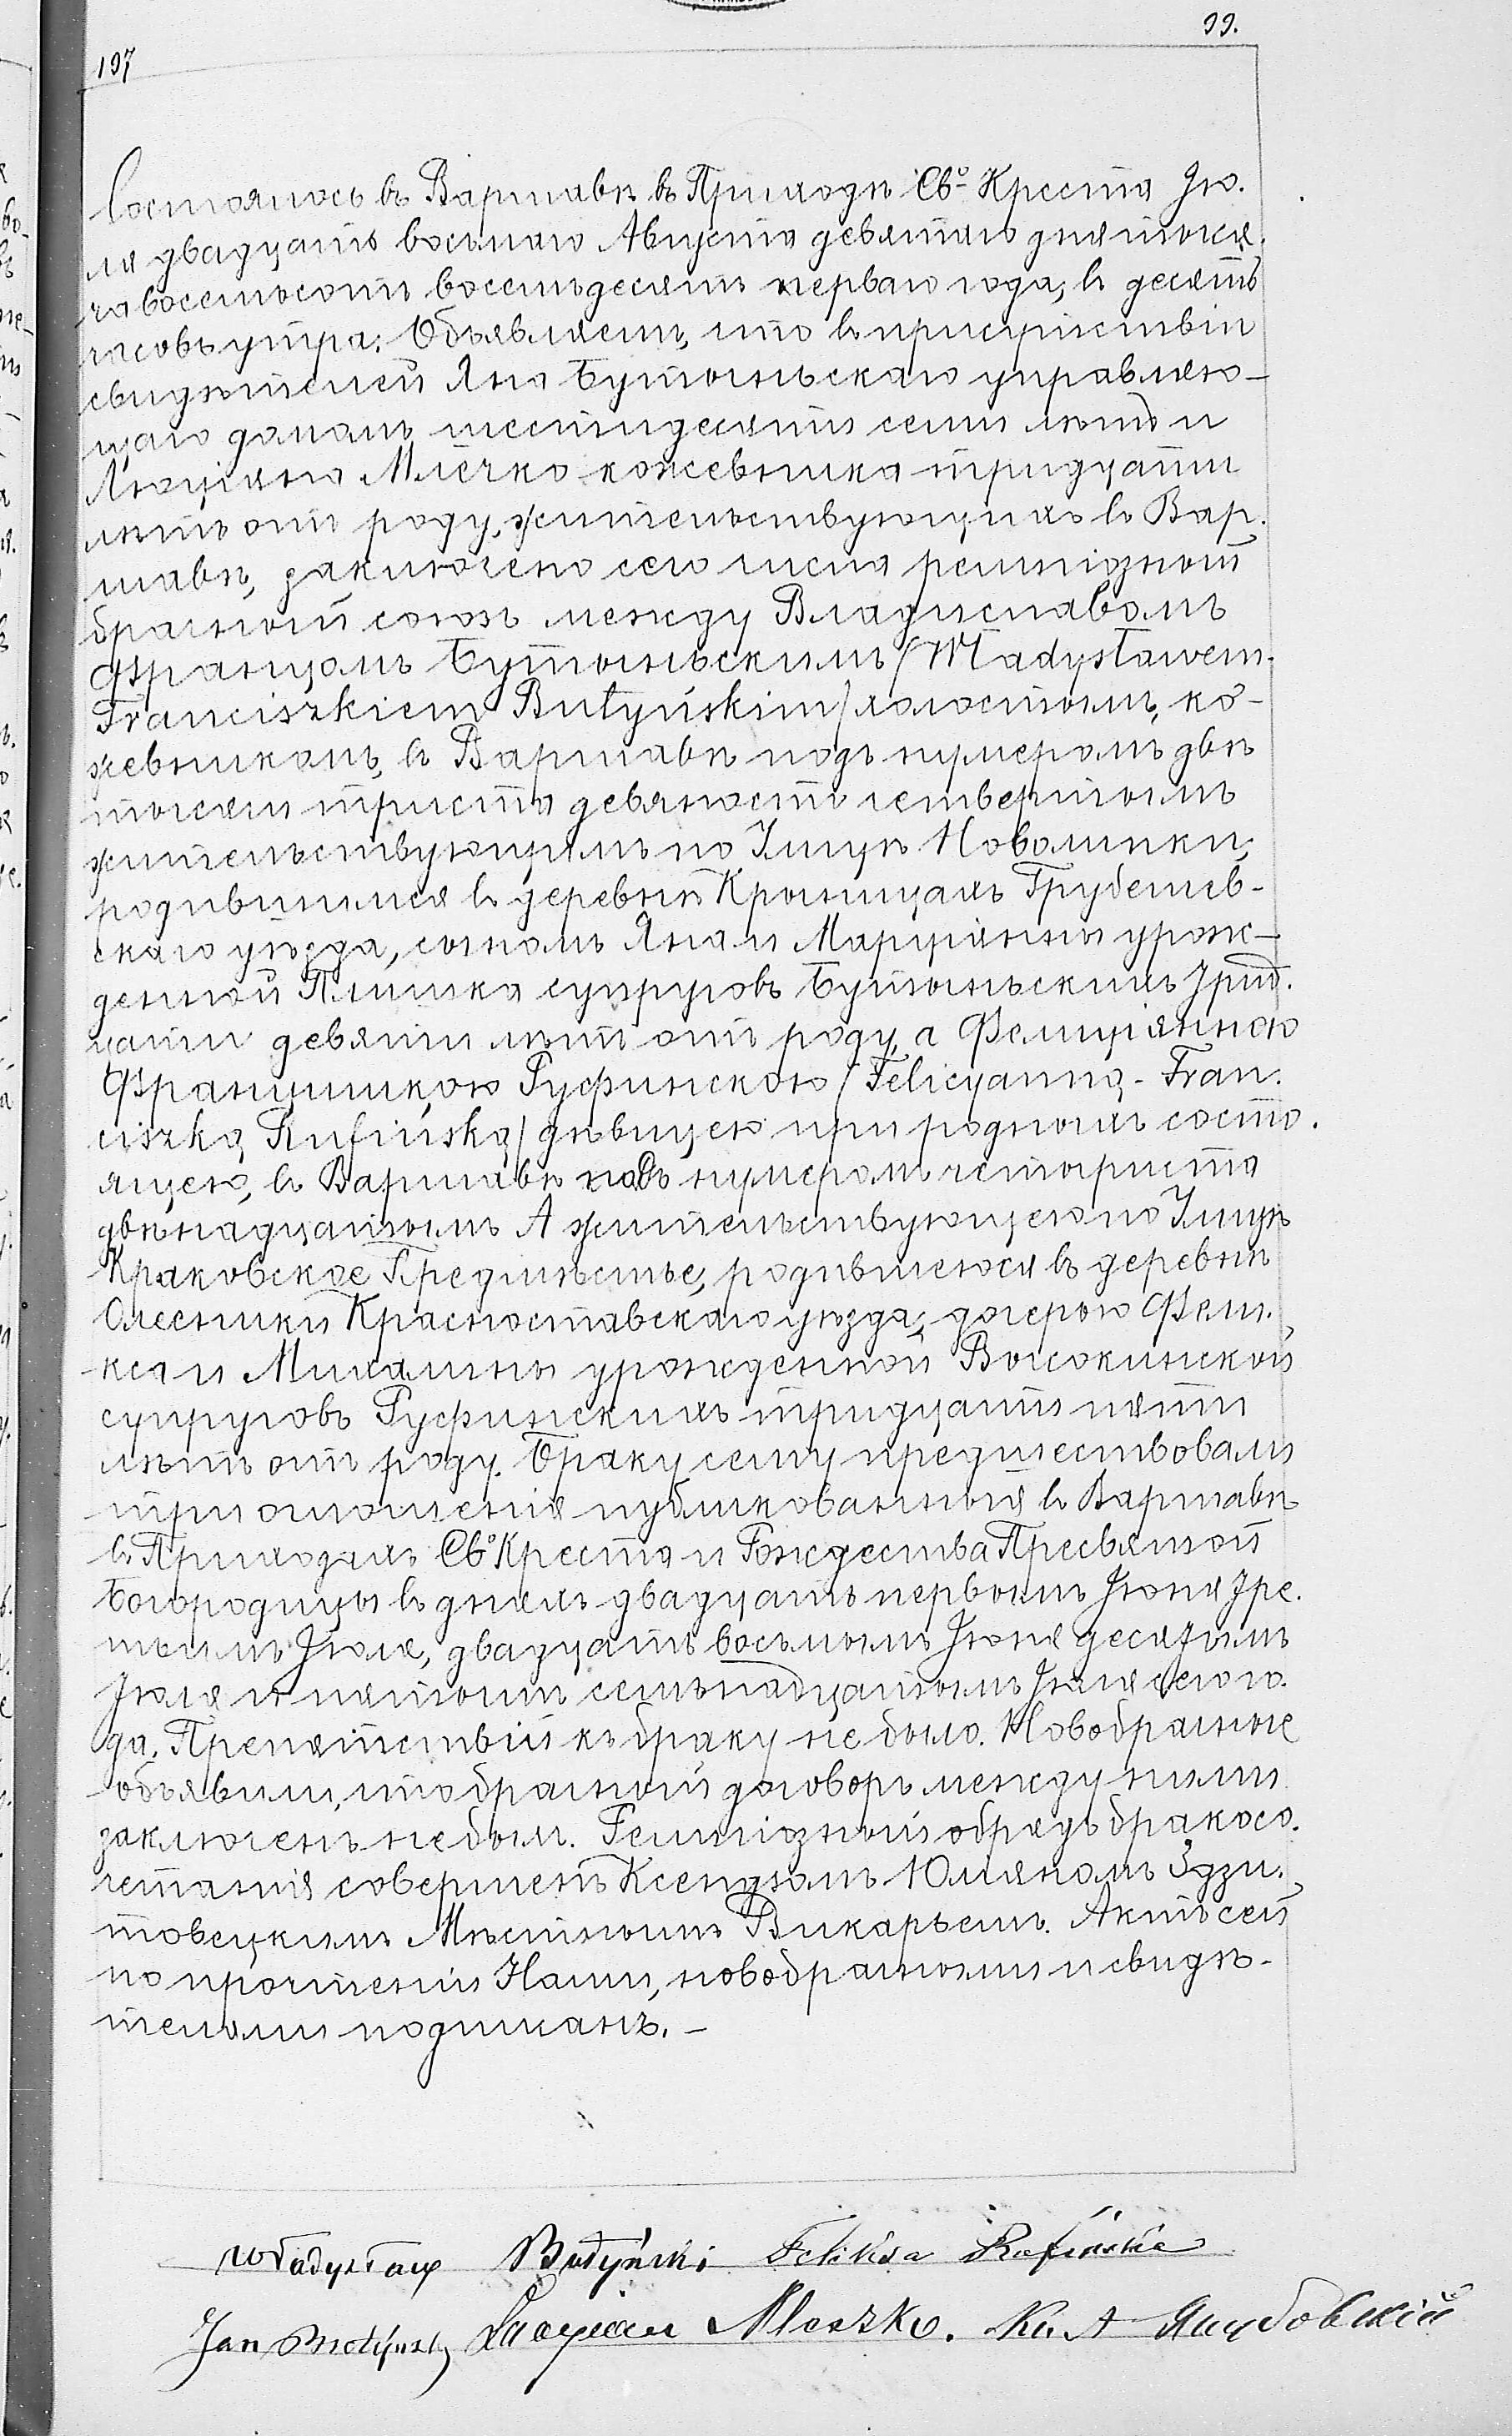 99.
197
Состоялось въ Варшавѣ въ Приходѣ Св.º Креста Ію.
ля двадцать восьмаго Августа девятаго дня тыся.
ча восемьсотъ восемьдесятъ перваго года, въ десять
часовъ утра. Объявляемъ, что въ присутствіи
свидѣтелей Яна Бутыньскаго управляю-
щаго домомъ шестидесяти семи лѣтъ и
Люціяна Млечко кожевника тридцати
лѣтъ отъ роду, жительствующихъ въ Вар.
шавѣ, заключено сего числа религіозный
брачный союзъ между Владиславомъ
Францомъ Бутыньскимъ /Władysławem.
Franciszkiem Butyńskim/ холостымъ, ко-
жевникомъ, въ Варшавѣ подъ нумеромъ двѣ
тысячи триста девяносто четвертымъ
жительствующимъ по Улицѣ Новолипки,
родившимся въ деревнѣ Крыницахъ Грубешев-
скаго уѣзда, сыномъ Яна и Марціянны урож-
денной супруговъ Бутыньскихъ Трид.
цати девяти лѣтъ отъ роду, а Фелиціянною
Францишкою Руфинскою /Felicyanną-Fran.
ciszką Rufińską/ дѣвицею при родныхъ состо.
ящею, въ Варшавѣ подъ нумеромъ четыриста
двѣнадцатымъ А жительствующею по Улицѣ
Краковское Предмѣстье, родившеюся въ деревнѣ
Олесники Красноставскаго уѣзда, дочерью Фели.
кса и Михалины урожденной Высокинской
супруговъ Руфинскихъ тридцати пяти
лѣтъ отъ роду. Браку сему предшествовали
три оглашенія публикованныя въ Варшавѣ
въ Приходахъ Св.º Креста и Рождества Пресвятой
Богородицы въ дняхъ двадцать первомъ Іюня Тре.
тьимъ Іюля, двадцать восьмымъ Іюня десятымъ
Іюля и пятымъ семьнадцатымъ Іюля сего го.
да. Препятствій къ браку не было. Новобрачные
объявили, что брачный договоръ между ними
заключенъ не былъ. Религіозный обрядъ бракосо.
четанія совершенъ Ксендзомъ Юліяномъ Здзи.
товецкимъ Мѣстнымъ Викарьемъ. Актъ сей
по прочтеніи Нами, новобрачными и свидѣ-
телями подписанъ.-
Władysław Butyński Feliksa Rufińska
Jan Butyński Lucyian Mleczko. Кс. А